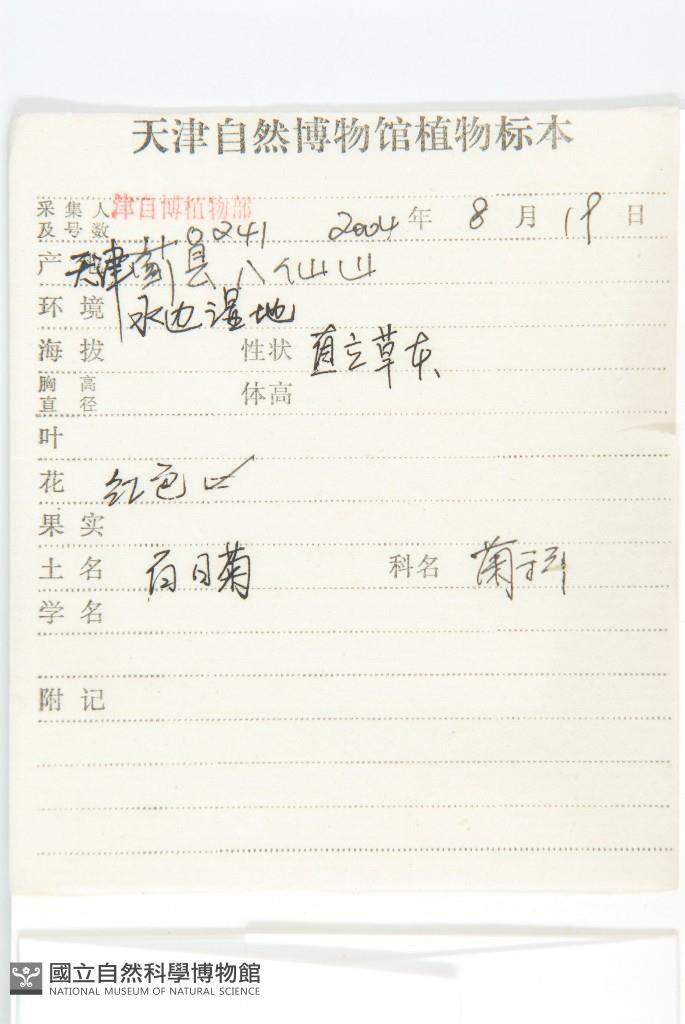 天津自然博物馆植物标本
采集人及号数 津自博植物部 0241 2004年 8月 19日
产地 天津蓟县八仙山
环境 水边湿地
海拔 性状 直立草本
胸高直径 体高
叶
花 红色
果实
土名 百日菊 科名 菊科
学名
附记
國立自然科學博物館
NATIONAL MUSEUM OF NATURAL SCIENCE